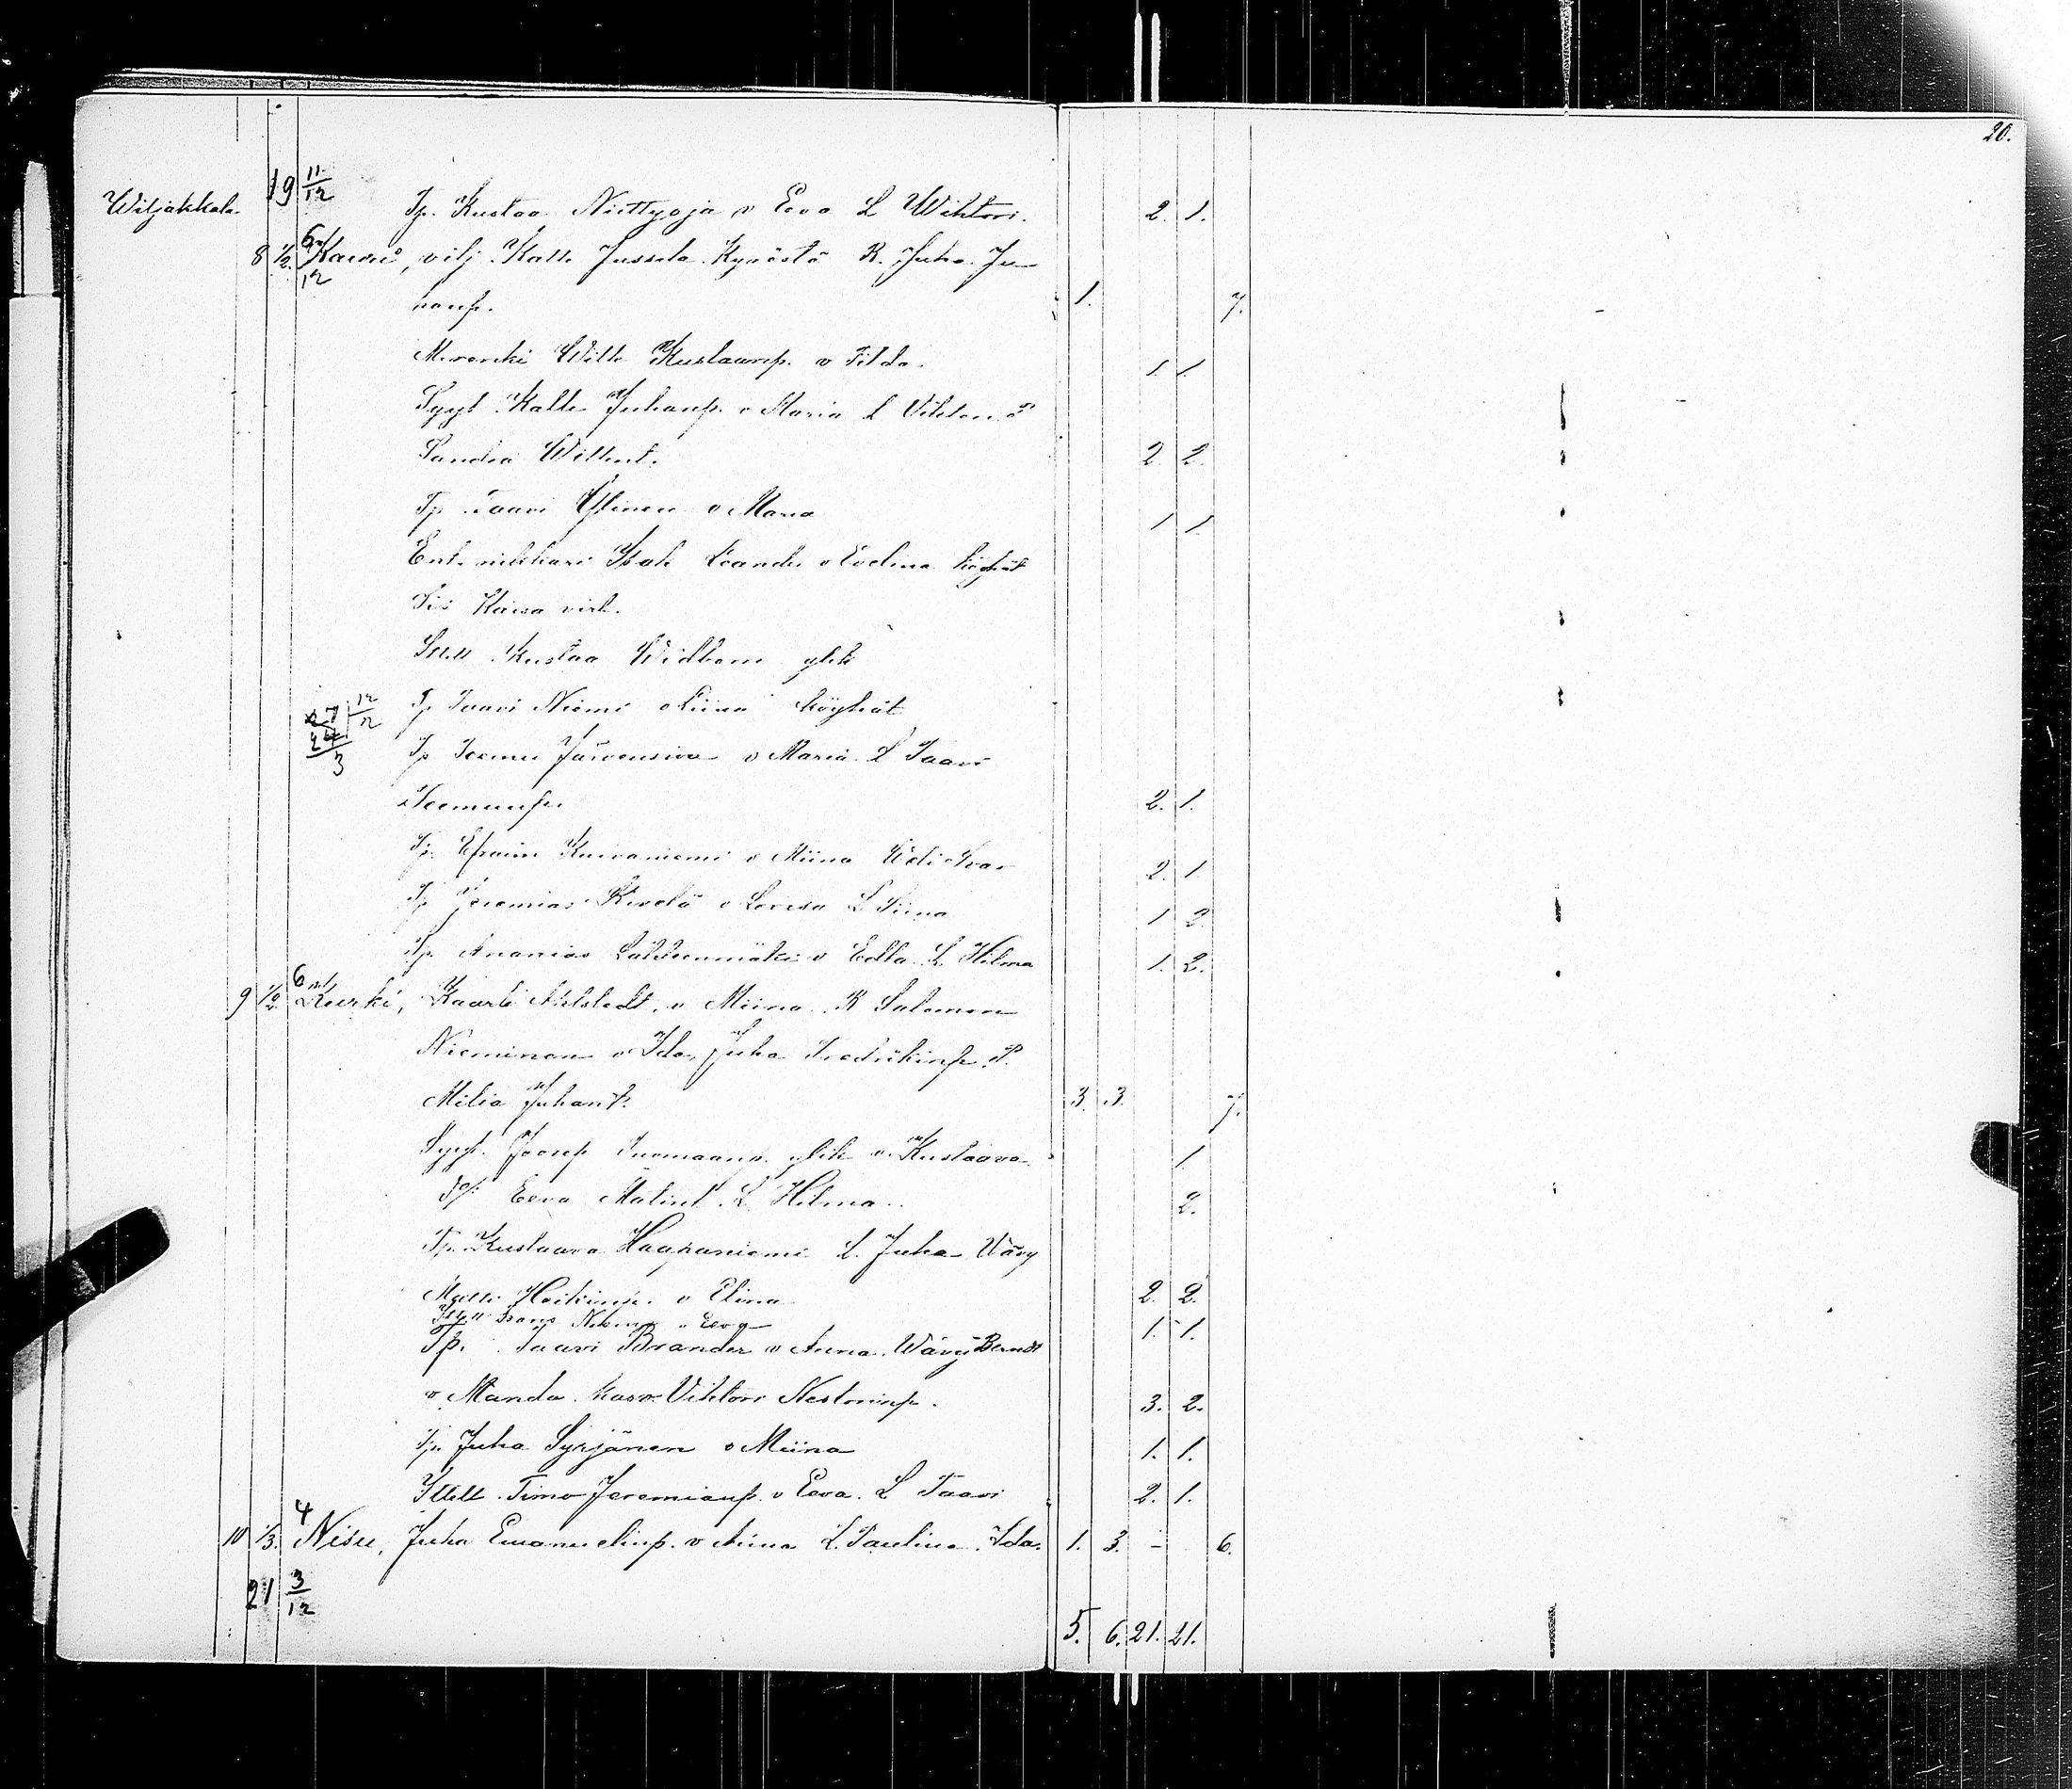 20.
Wiljakkala 19 11/12 Tp. Kustaa Niittyoja v Eeva L Wihtori. 2. 1.
8 1/2. 6/12 Karvu, vilj. Kalle Jussila Kyröstä R. Juha Ju
hanp. 1. 7.
Wille Kustaanp. v Tilda. 1. 1.
Kalle Juhanp. v Maria L Vihtori P
Sandra Willent. 2. 2.
Tp. Taavi Ylinen v Maria 1 1.
Ent. nikkari Isak Leander v Evelina köyhät
Kaisa
Ittell Kustaa Widbom ylik
27 12/12 Tp Taavi Niemi v Riina köyhät
24
3 Tp Teemu Järvensivu v Maria L Taavi
Teemunp. 2. 1.
Tp. Efraim Kuivaniemi v Miina 2. 1
Tp Jeremias Kivelä v Lovisa L Siina 1 2
Tp. Ananias Lähteenmäki v Edla L Hilma 1. 2.
9 1/2. 6 Kurki, Kaarle v Miina R Salomon
Nieminen v Ida, Juha Fredrikinp. P.
Milia Juhant. 3. 3. 7.
Joosep Tuomaanp. ylik v. Kustaava 1
Eeva Matint. L Hilma 2.
Tp. Kustaava Haapaniemi L. Juha Wävy
Matti Heikinp. v Elina 2. 2.
Ittell Frans v Eeva 1. 1.
Tp. Taavi Brander v Anna. Wävy Berndt
v Manda kasv. Vihtori Nestorinp. 3. 2.
Tp. Juha Syrjänen v Miina 1. 1.
Ittell. Timo Jeremianp. v Eeva. L Taavi 2. 1.
10 1/3. 4 Nisu, Juha Emanuelinp. v Miina L. Pauliina. Ida. 1. 3. - 6.
21 3/12
5. 6. 21. 21.